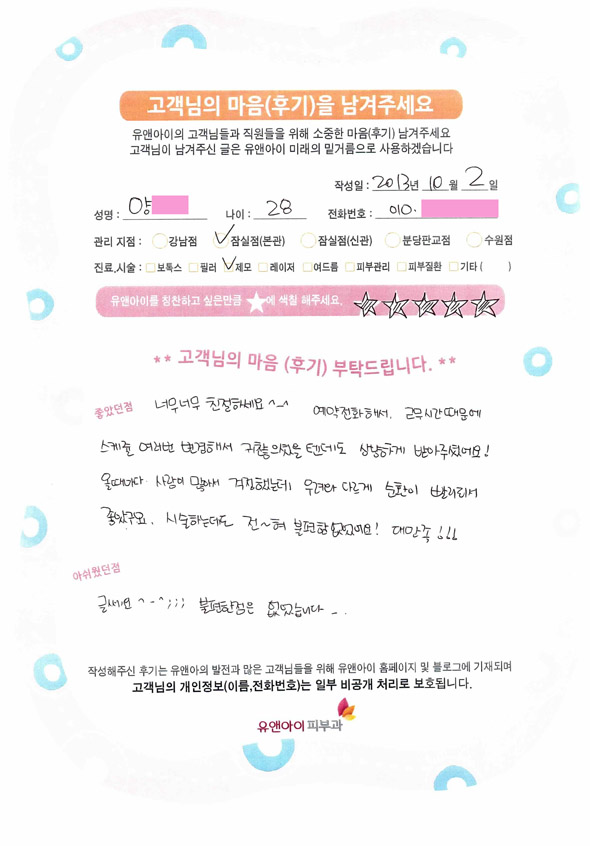 고객님의 마음(후기)을 남겨주세요
유앤아이의 고객님들과 직원들을 위해 소중한 마음(후기) 남겨주세요
고객님이 남겨주신 글은 유앤아이 미래의 밑거름으로 사용하겠습니다
작성일 : 2013년 10월 2일
성명 : 양 나이 : 28 전화번호 : 010.
관리 지점 : 강남점 잠실점(본관) 잠실점(신관) 분당판교점 수원점
진료,시술 : 보톡스 필러 제모 레이저 여드름 피부관리 피부질환 기타 ( )
유앤아이를 칭찬하고 싶은만큼 ★에 색칠 해주세요.
** 고객님의 마음 (후기) 부탁드립니다. **
좋았던점 너무너무 친절하세요^-^ 예약전화해서, 근무시간때문에
스케줄 여러번 변경해서 귀찮으셨을텐데도 상냥하게 받아주셨어요!
올때마다 사람이 많아서 걱정했는데 우려와 다르게 순환이 빨리되서
좋았구요. 시술하는데도 전~혀 불편함없었어요! 대만족!!!
아쉬웠던점
글쎄요^-^;;; 불편한점은 없었습니다 -.
작성해주신 후기는 유앤아의 발전과 많은 고객님들을 위해 유앤아이 홈페이지 및 블로그에 기재되며
고객님의 개인정보(이름,전화번호)는 일부 비공개 처리로 보호됩니다.
유앤아이피부과